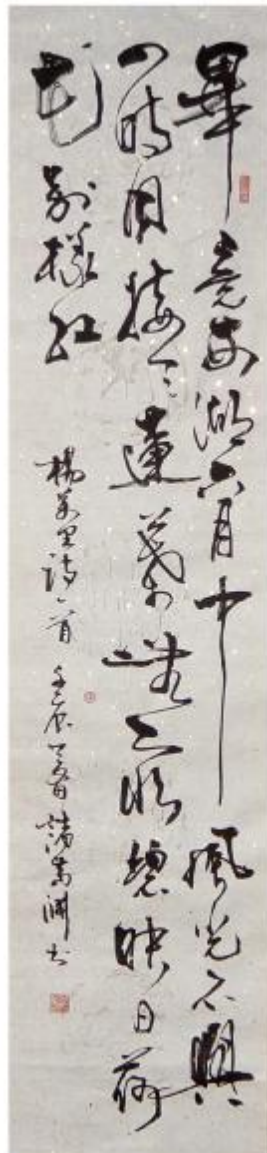 畢竟西湖六月中風光不與
四時同接天蓮葉無窮碧映日荷
花別樣紅
楊萬里詩一首 壬辰 書